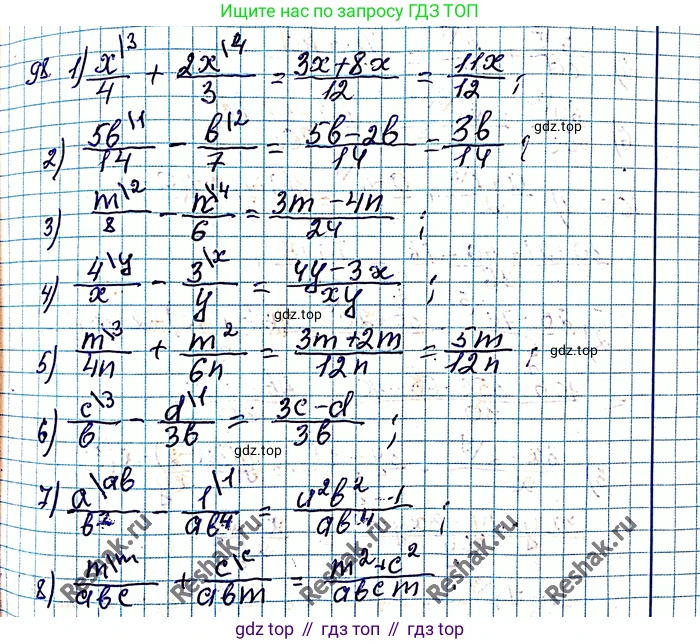 Ищите нас по запросу ГДЗ ТОП
98. 1) x\3/4 + 2x\4/3 = 3x+8x/12 = 11x/12 ;
2) 5b\1/14 - b\2/7 = 5b-2b/14 = 3b/14 ;
gdz.top
3) m\2/8 - n\4/6 = 3m-4n/24 ;
4) 4\y/x - 3\x/y = 4y-3x/xy ;
gdz.top
5) m\3/4n + m 2/6n = 3m+2m/12n = 5m/12n ;
gdz.top
6) c\3/b - d\1/3b = 3c-d/3b ;
gdz.top
7) a\ab/b² - 1\1/ab⁴ = a²b²-1/ab⁴ ;
8) m\m/abc + c\c/abm = m²+c²/abcm ;
Reshak.ru
Reshak.ru
Reshak.ru
Reshak.ru
Reshak.ru
gdz.top // гдз.топ // gdz.top